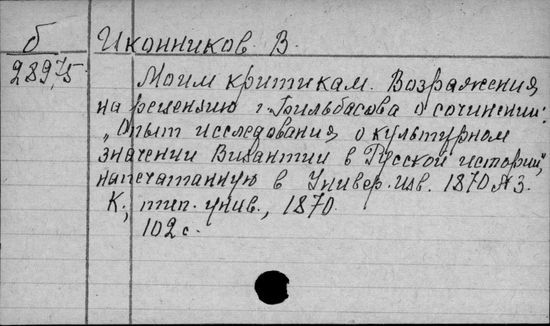 б Иконников В.
289,75 Моим критикам. Возражения
на рецензию г. Бильбасова о сочинении:
„Опыт исследования о культурном
значении Византии в Русской истории",
напечатанную в Универ. изв. 1870 №3.
К., тип. унив., 1870.
102 с.